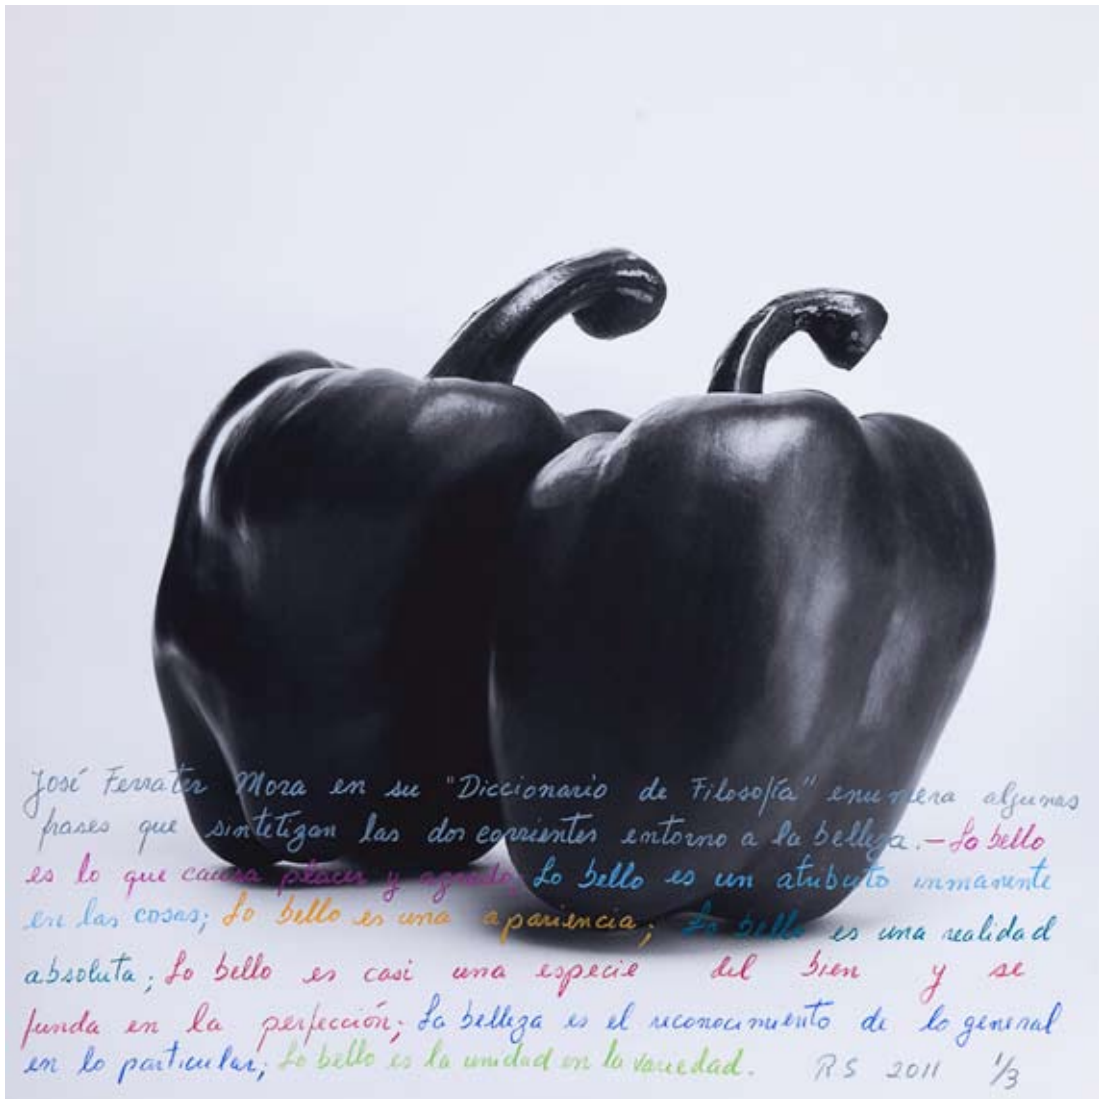 José Ferrater Mora en su "Diccionario de Filosofía" enumera algunas
frases que sintetizan las dos corrientes entorno a la belleza.- Lo bello
es lo que causa placer y agrado; Lo bello es un atributo inmanente
en las cosas; Lo bello es una apariencia; Lo bello es una realidad
absoluta; Lo bello es casi una especie del bien y se
funda en la perfección; La belleza es el reconocimiento de lo general
en lo particular; Lo bello es la unidad en la variedad. RS 2011 1/3